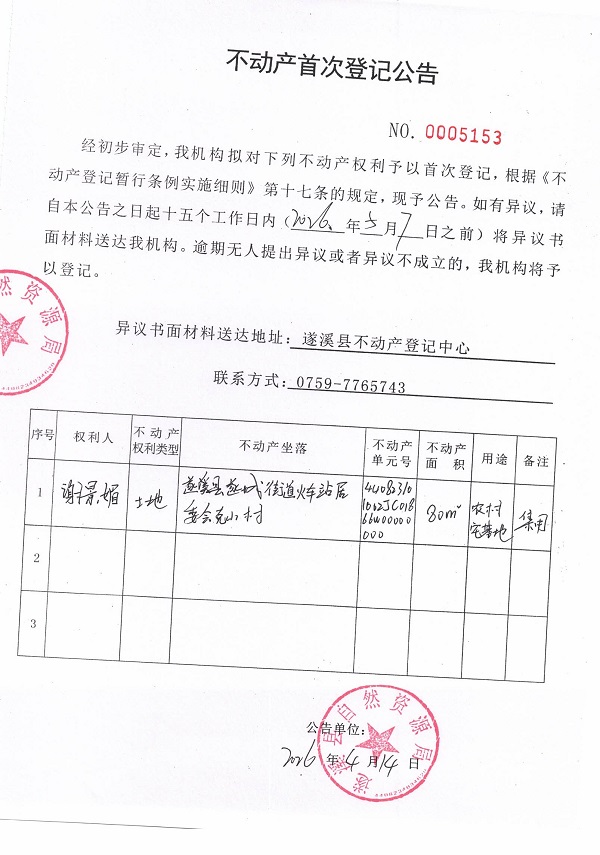 不动产首次登记公告
NO. 0005153
经初步审定，我机构拟对下列不动产权利予以首次登记，根据《不
动产登记暂行条例实施细则》第十七条的规定，现予公告。如有异议，请
自本公告之日起十五个工作日内（2026年5月7日之前）将异议书
面材料送达我机构。逾期无人提出异议或者异议不成立的，我机构将予
以登记。
异议书面材料送达地址：遂溪县不动产登记中心
联系方式：0759-7765743
序号 权利人 不动产权利类型 不动产坐落 不动产单元号 不动产面积 用途 备注
1 谢景媚 土地 遂溪县遂城街道火车站居委会 村 80m² 农村宅基地 集用
2
3
公告单位：
2026年4月14日
遂溪县自然资源局
然资源局